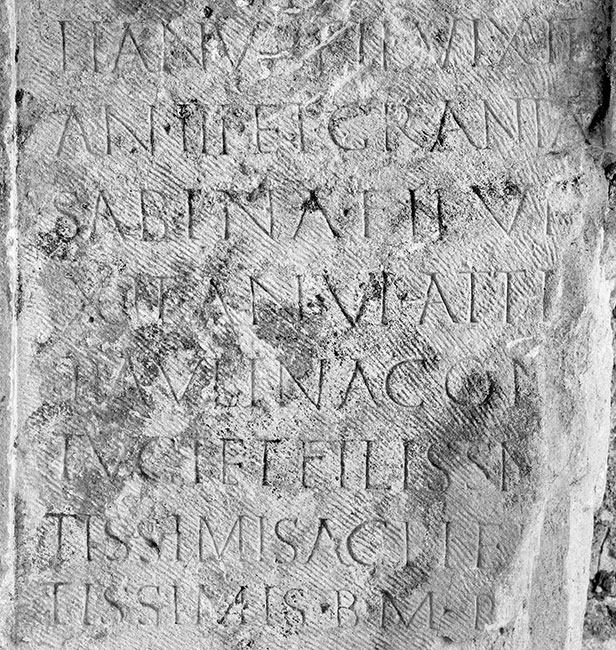 FIL VIXIT
AN III ET GRANIA
SABINA FIL VI
XIT AN VI
PAVLINA CON
IVGI ET FILIS
TISSIMIS AC PIE
TISSIMIS·B·M·P